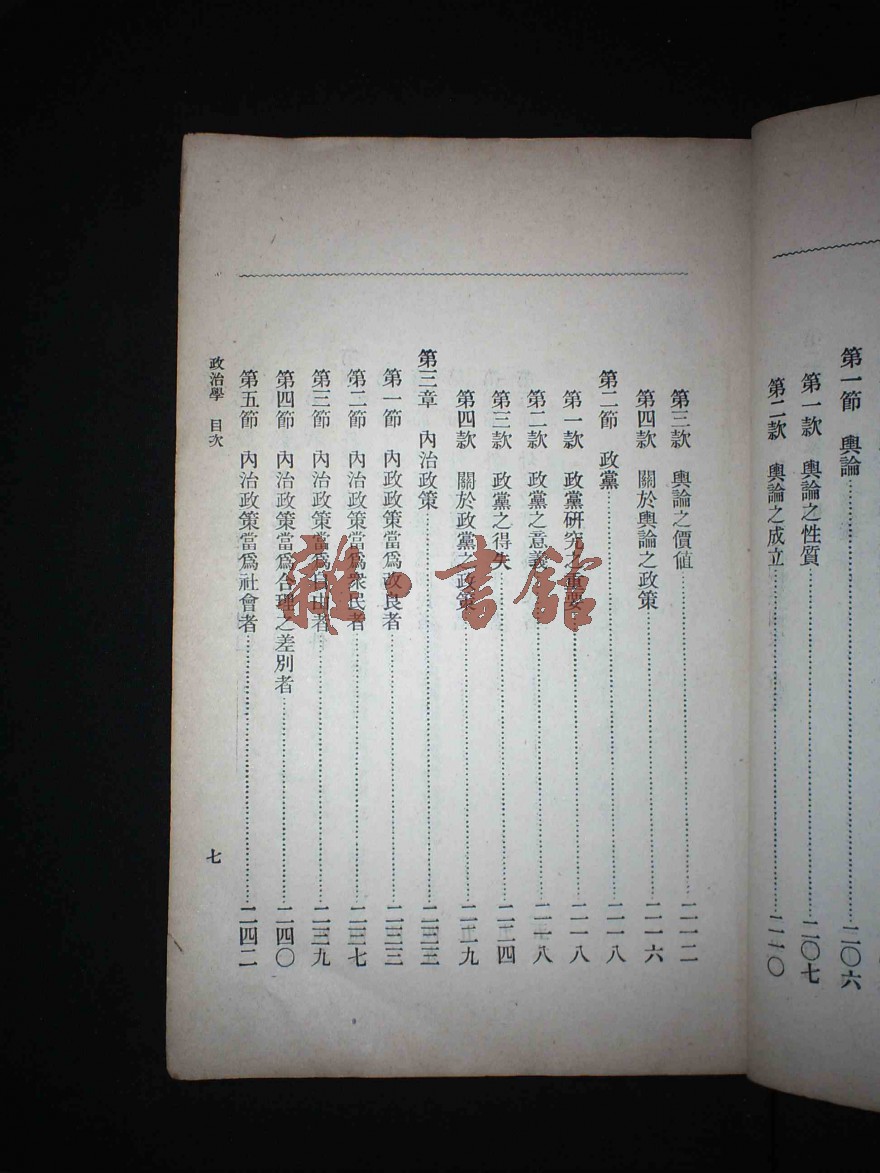 第一節　輿論……二〇六
第一款　輿論之性質……二〇七
第二款　輿論之成立……二一〇
第三款　輿論之價値……二一二
第四款　關於輿論之政策……二一六
第二節　政黨……二一八
第一款　政黨研究之重要……二一八
第二款　政黨之意義……二一八
第三款　政黨之得失……二二四
第四款　關於政黨之政策……二二九
第三章　內治政策……二三三
第一節　內政政策當爲改良者……二三三
第二節　內治政策當爲衆民者……二三七
第三節　內治政策當爲自由者……二三九
第四節　內治政策當爲合理之差別者……二四〇
第五節　內治政策當爲社會者……二四二
政治學　目次
七
雜·書館